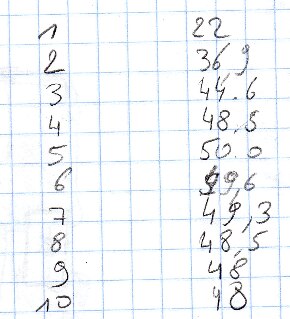 1 22
2 36,9
3 44.6
4 48,5
5 50.0
6 49,6
7 49,3
8 48,5
9 48
10 48